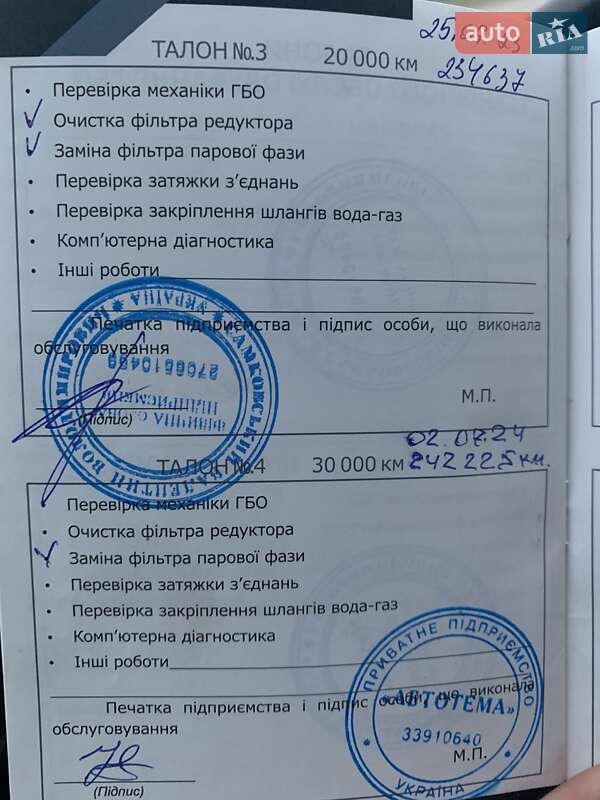 ТАЛОН №.3 20 000 км 234637
auto RIA .com
• Перевірка механіки ГБО
• Очистка фільтра редуктора
• Заміна фільтра парової фази
• Перевірка затяжки з’єднань
• Перевірка закріплення шлангів вода-газ
• Комп’ютерна діагностика
• Інші роботи
Печатка підприємства і підпис особи, що виконала
обслуговування
УКРАЇНА
ВАЛЕНТИН ВОЛОДИМИРОВИЧ
М.П.
(Підпис)
02.07.24
ТАЛОН №.4 30 000 км 242225 км.
• Перевірка механіки ГБО
• Очистка фільтра редуктора
• Заміна фільтра парової фази
• Перевірка затяжки з’єднань
• Перевірка закріплення шлангів вода-газ
• Комп’ютерна діагностика
• Інші роботи
Печатка підприємства і підпис особи, що виконала
обслуговування
ПРИВАТНЕ ПІДПРИЄМСТВО
«АВТОТЕМА»
33910640
УКРАЇНА
М.П.
(Підпис)